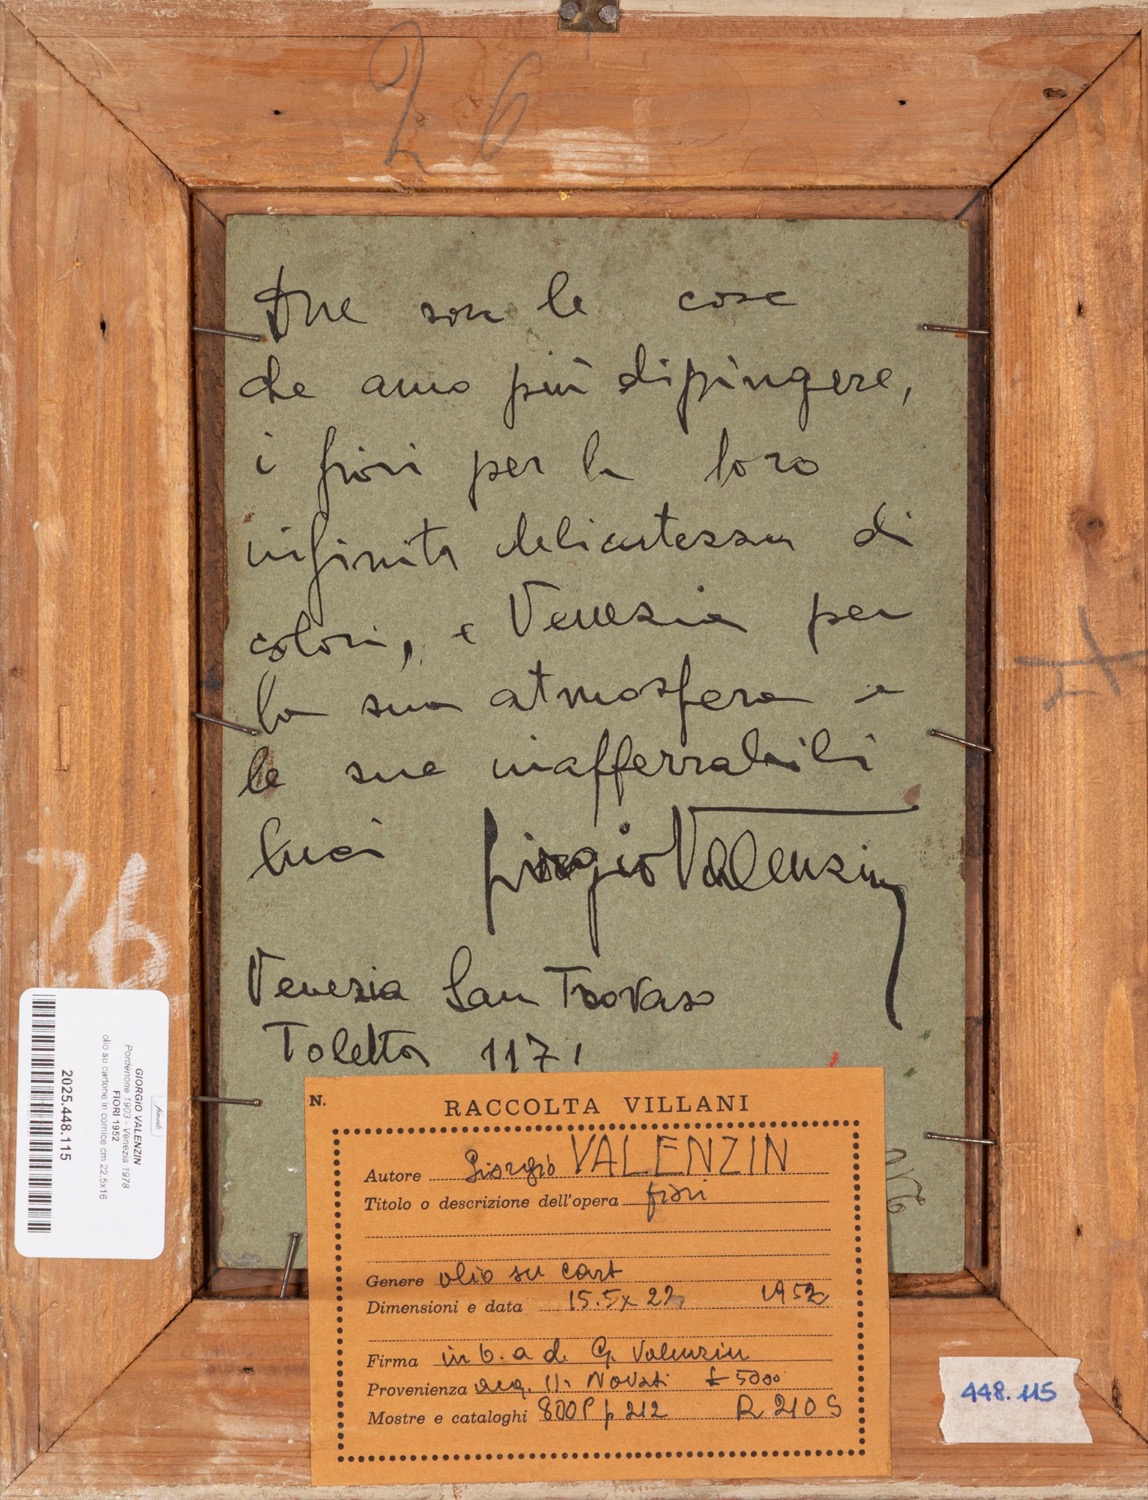 26
Due son le cose
che amo più dipingere,
i fiori per la loro
infinita delicatezza di
colori, e Venezia per
la sua atmosfera e
le sue inafferrabili
luci Giorgio Valenzin
Venezia San Trovaso
Toletta 1171
26
GIORGIO VALENZIN
Pordenone 1903 - Venezia 1978
FIORI 1952
olio su cartone in cornice cm 22,5x16
2025.448.115
N.
RACCOLTA VILLANI
Autore Giorgio VALENZIN
Titolo o descrizione dell'opera fiori
Genere olio su cart
Dimensioni e data 15.5x22, 1952
Firma in b. a d. G. Valenzin
Provenienza acq. Novati £ 5000
Mostre e cataloghi p 212 R 210 S
448.115